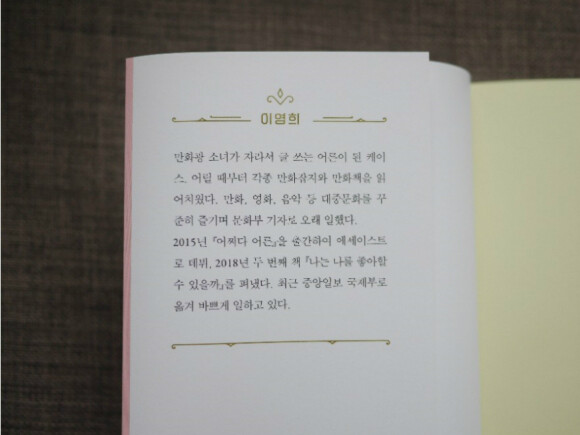 이영희
만화광 소녀가 자라서 글 쓰는 어른이 된 케이
스. 어릴 때부터 각종 만화잡지와 만화책을 읽
어치웠다. 만화, 영화, 음악 등 대중문화를 꾸
준히 즐기며 문화부 기자로 오래 일했다.
2015년 『어쩌다 어른』을 출간하여 에세이스트
로 데뷔, 2018년 두 번째 책 『나는 나를 좋아할
수 있을까』를 펴냈다. 최근 중앙일보 국제부로
옮겨 바쁘게 일하고 있다.